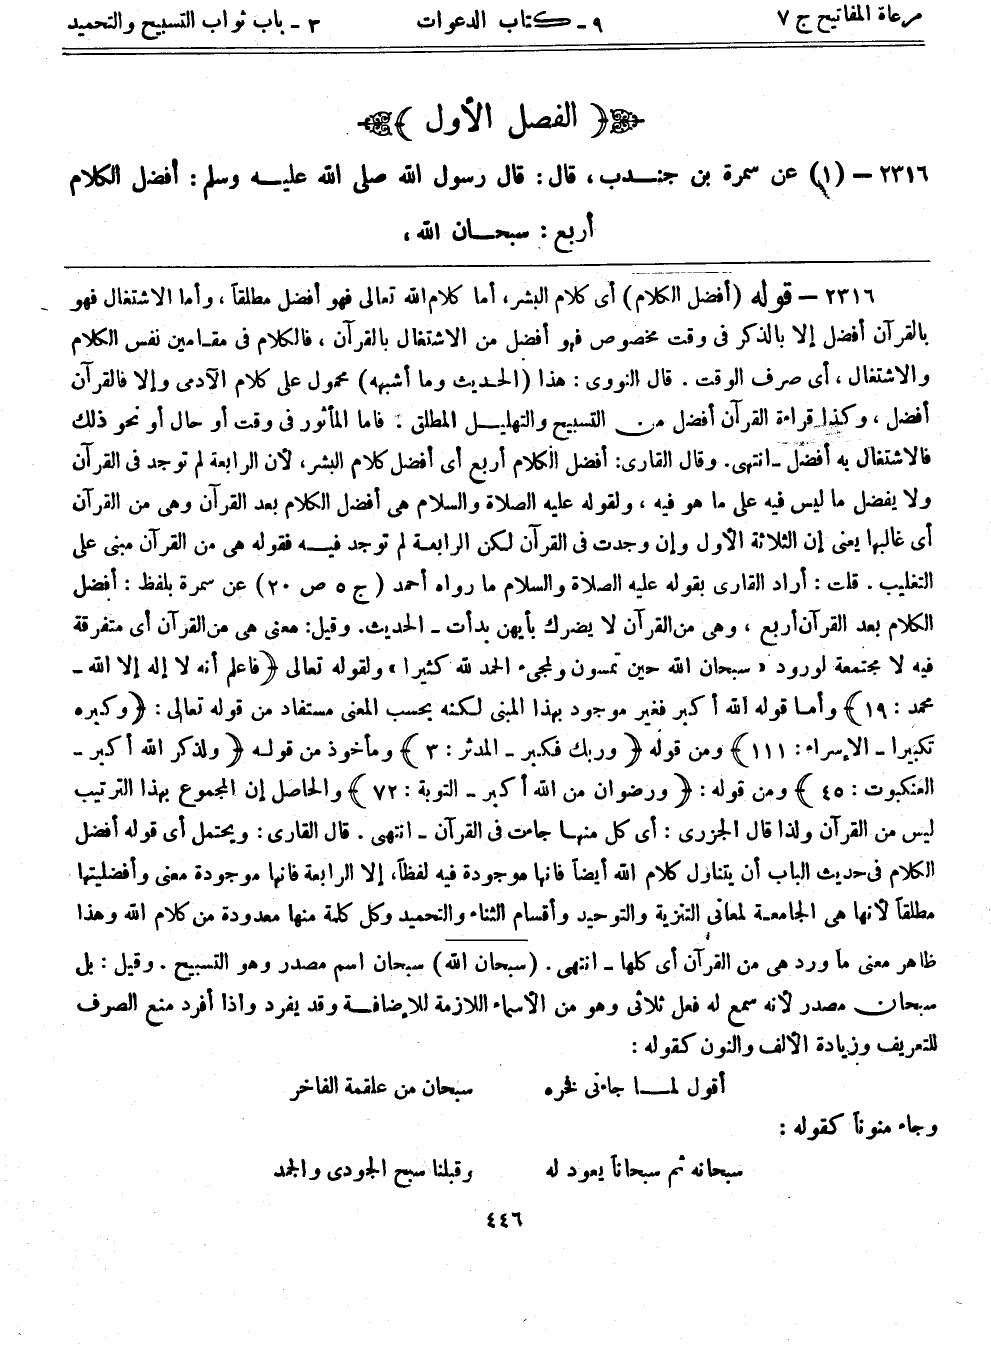 مرعاة المفاتيح ج ٧ ٩ ـ كتاب الدعوات ٣ ـ باب ثواب التسبيح والتحميد
﴿ الفصل الأول ﴾
٢٣١٦ – (١) عن سمرة بن جندب، قال: قال رسول الله صلى الله عليه وسلم: أفضل الكلام
أربع: سبحان الله،
٢٣١٦ – قوله (أفضل الكلام) أى كلام البشر، أما كلام الله تعالى فهو أفضل مطلقاً، وأما الاشتغال فهو
بالقرآن أفضل إلا بالذكر فى وقت مخصوص فهو أفضل من الاشتغال بالقرآن، فالكلام فى مقامين نفس الكلام
والاشتغال، أى صرف الوقت. قال النووى: هذا (الحديث وما أشبهه) محمول على كلام الآدمى وإلا فالقرآن
أفضل، وكذا قراءة القرآن أفضل من التسبيح والتهليل المطلق: فاما المأثور فى وقت أو حال أو نحو ذلك
فالاشتغال به أفضل ـ انتهى. وقال القارى: أفضل الكلام أربع أى أفضل كلام البشر، لأن الرابعة لم توجد فى القرآن
ولا يفضل ما ليس فيه على ما هو فيه، ولقوله عليه الصلاة والسلام هى أفضل الكلام بعد القرآن وهى من القرآن
أى غالبها يعنى إن الثلاثة الأول وإن وجدت فى القرآن لكن الرابعة لم توجد فيه فقوله هى من القرآن مبنى على
التغليب. قلت: أراد القارى بقوله عليه الصلاة والسلام ما رواه أحمد (ج ٥ ص ٢٠) عن سمرة بلفظ: أفضل
الكلام بعد القرآن أربع، وهى من القرآن لا يضرك بأيهن بدأت ـ الحديث. وقيل: معنى هى من القرآن أى متفرقة
فيه لا مجتمعة لورود « سبحان الله حين تمسون ولمجىء الحمد لله كثيرا » ولقوله تعالى ﴿فاعلم أنه لا إله إلا الله ـ
محمد: ١٩﴾ وأما قوله الله أكبر فغير موجود بهذا المبنى لكنه بحسب المعنى مستفاد من قوله تعالى: ﴿وكبره
تكبيرا ـ الإسراء: ١١١﴾ ومن قوله ﴿وربك فكبر ـ المدثر: ٣﴾ ومأخوذ من قوله ﴿ولذكر الله أكبر ـ
العنكبوت: ٤٥﴾ ومن قوله: ﴿ورضوان من الله أكبر ـ التوبة: ٧٢﴾ والحاصل إن المجموع بهذا الترتيب
ليس من القرآن ولذا قال الجزرى: أى كل منها جاءت فى القرآن ـ انتهى. قال القارى: ويحتمل أى قوله أفضل
الكلام فى حديث الباب أن يتناول كلام الله أيضاً فانها موجودة فيه لفظاً، إلا الرابعة فانها موجودة معنى وأفضليتها
مطلقاً لأنها هى الجامعة لمعانى التنزية والتوحيد وأقسام الثناء والتحميد وكل كلمة منها معدودة من كلام الله وهذا
ظاهر معنى ما ورد هى من القرآن أى كلها ـ انتهى. (سبحان الله) سبحان اسم مصدر وهو التسبيح. وقيل: بل
سبحان مصدر لأنه سمع له فعل ثلاثى وهو من الأسماء اللازمة للإضافة وقد يفرد واذا أفرد منع الصرف
للتعريف وزيادة الألف والنون كقوله:
أقول لما جاءنى فخره سبحان من علقمة الفاخر
وجاء منوناً كقوله:
سبحانه ثم سبحاناً يعود له وقبلنا سبح الجودى والجمد
٤٤٦